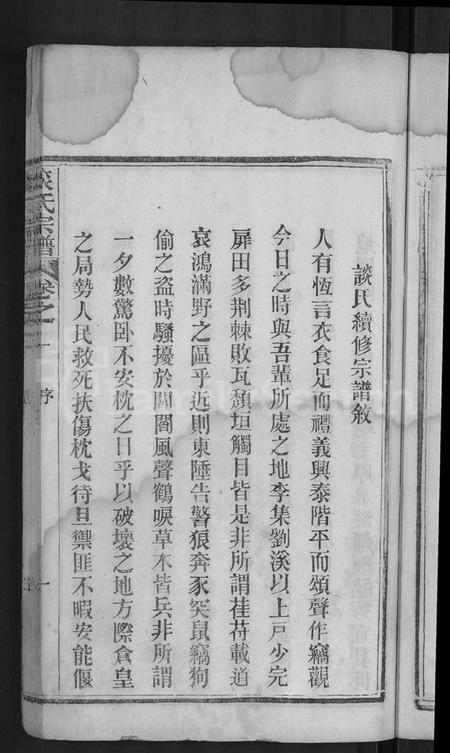 談氏續修宗譜敘
人有恆言衣食足而禮義興泰階平而頌聲作竊觀
今日之時與吾輩所處之地李集劉溪以上戶少完
扉田多荆棘敗瓦頽垣觸目皆是非所謂萑苻載道
哀鴻滿野之區乎近則東陲告警狼奔豕突鼠竊狗
偷之盜時騷擾於閭閻風聲鶴唳草木皆兵非所謂
一夕數驚卧不安枕之日乎以破壞之地方際倉皇
之局勢人民救死扶傷枕戈待旦禦匪不暇安能偃
談氏宗譜 卷之一 序 一